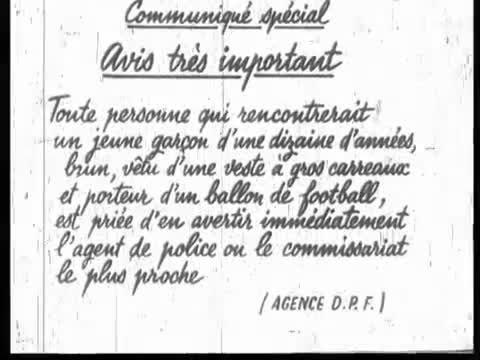 Communiqué spécial
Avis très important
Toute personne qui rencontrerait
un jeune garçon d'une dizaine d'années,
brun, vêtu d'une veste à gros carreaux
et porteur d'un ballon de football,
est priée d'en avertir immédiatement
l'agent de police ou le commissariat
le plus proche
(AGENCE D.P.F.)